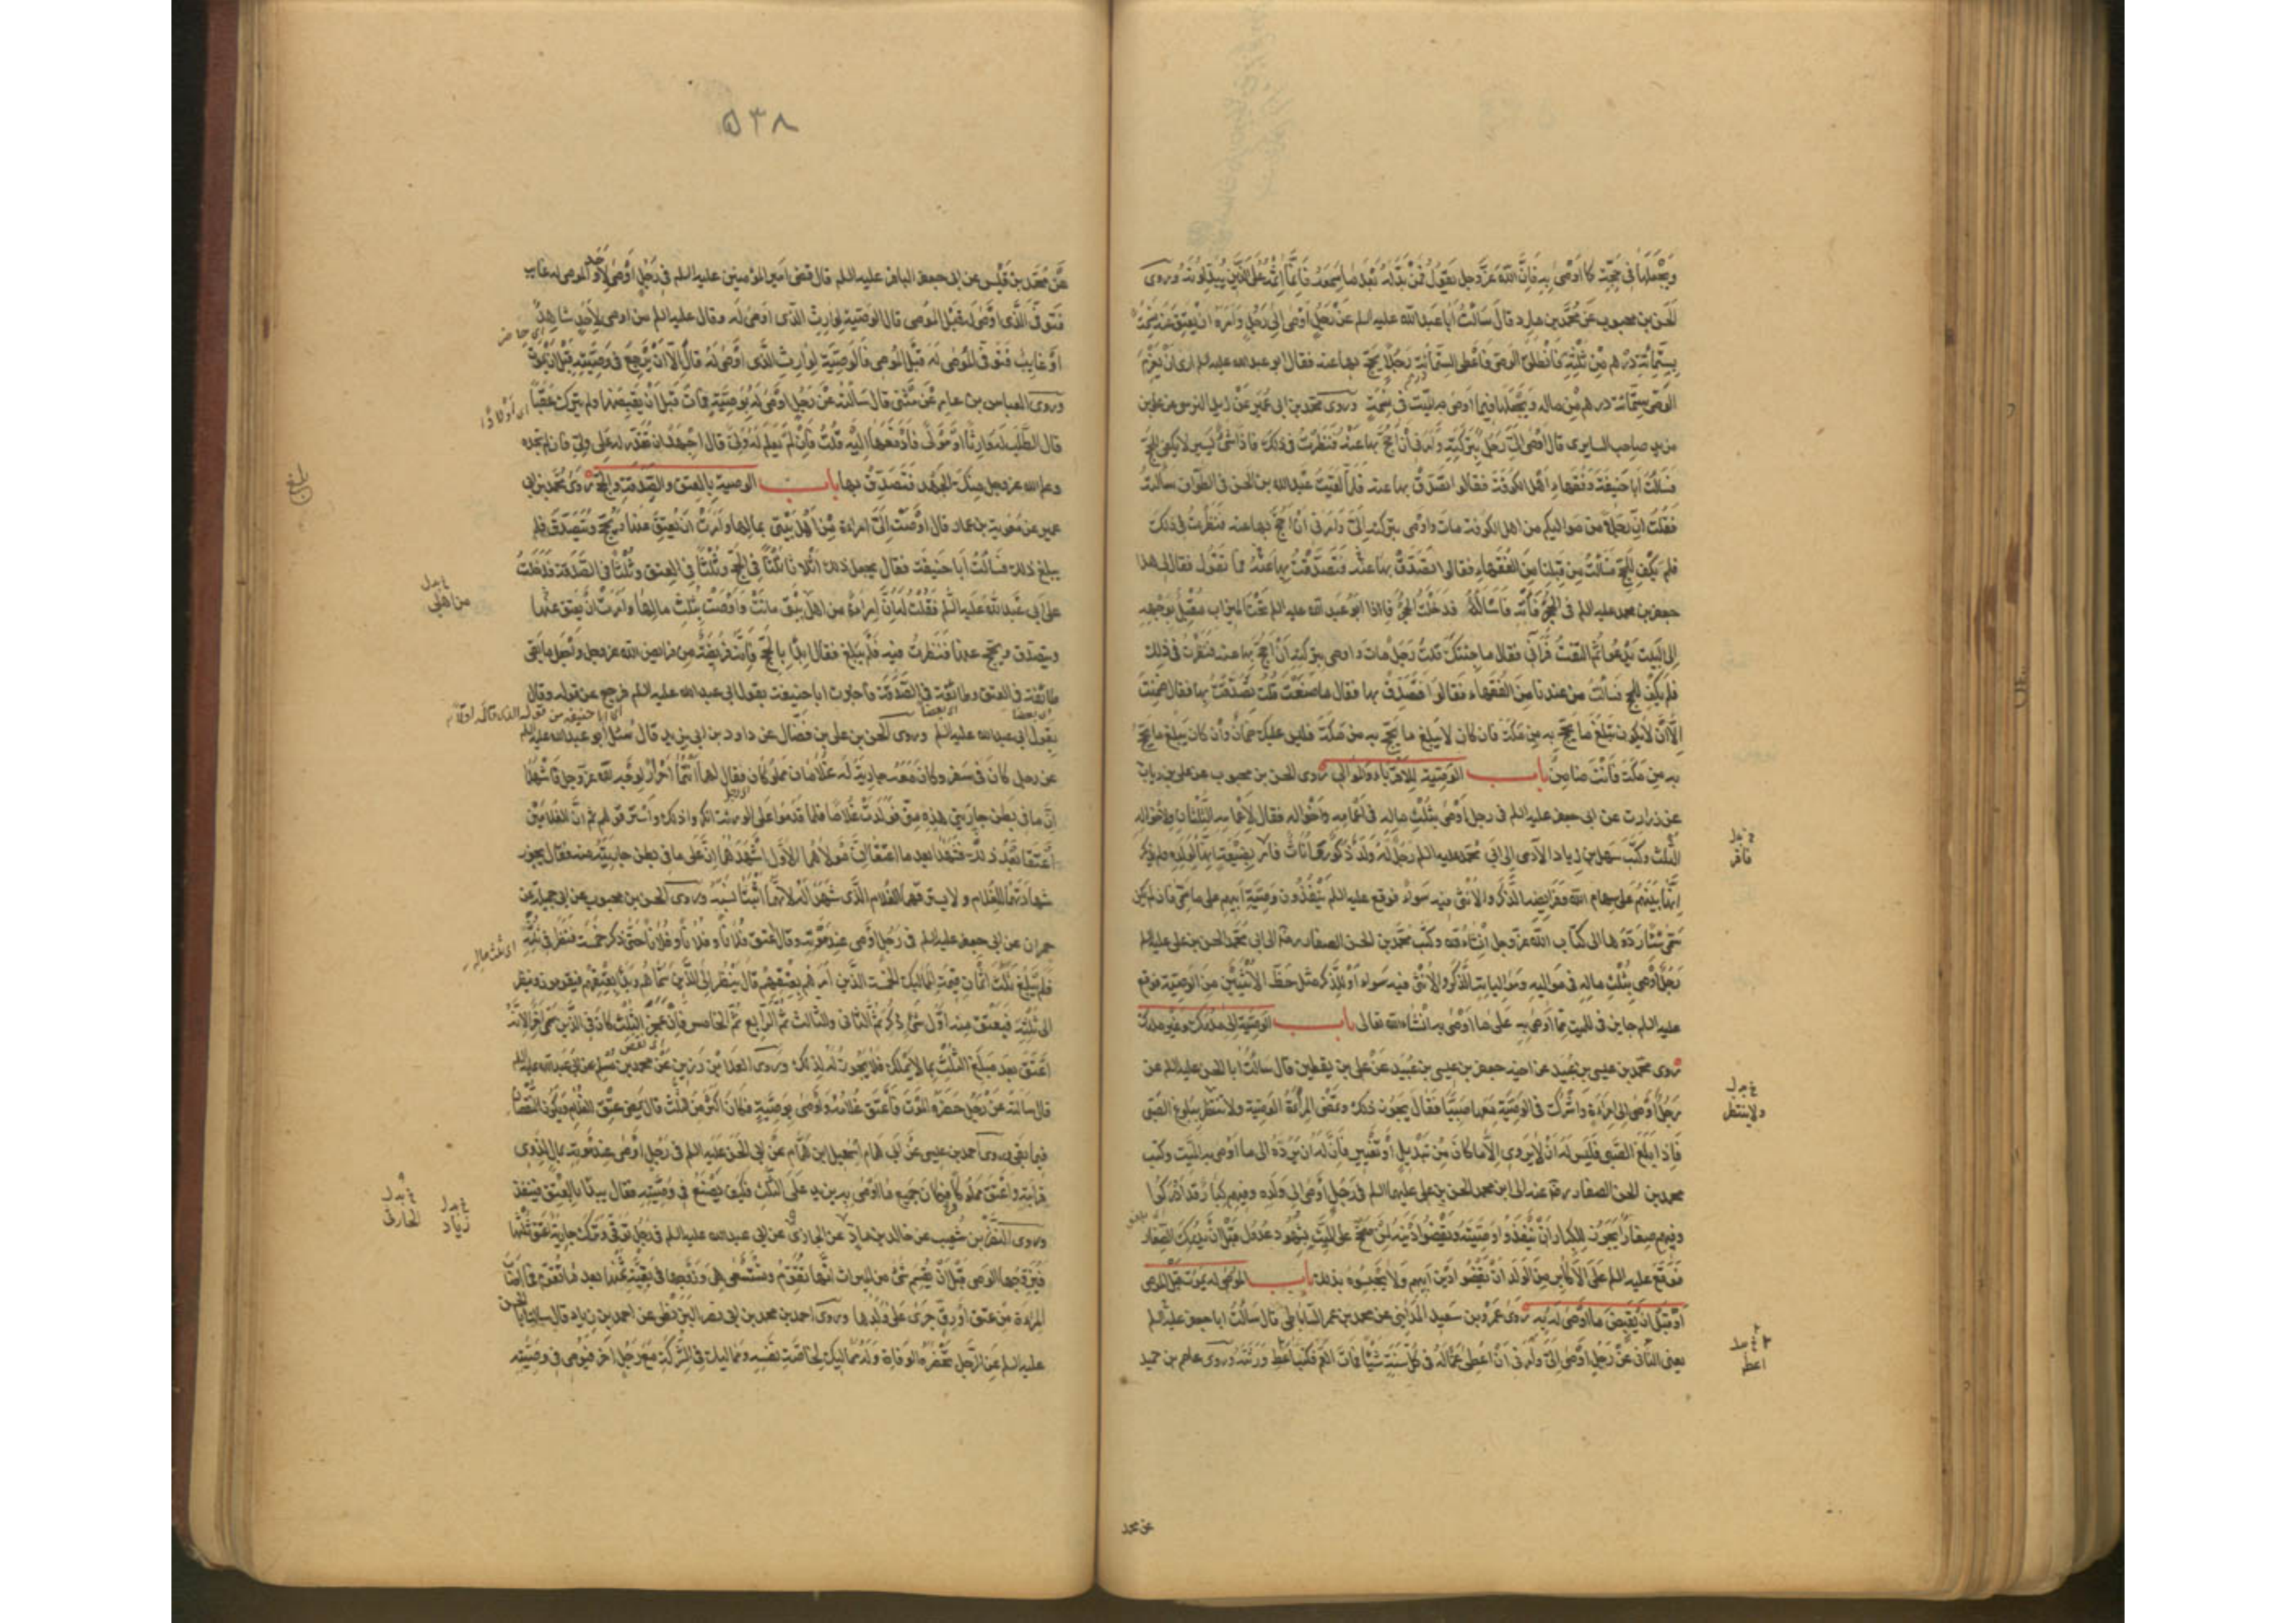 ويجعلها في حجة كما اوصى به فان الله عز وجل يقول فمن بدله بعد ما سمعه فانما اثمه على الذين يبدلونه وروى
الحسن بن محبوب عن محمد بن مارد قال سالت ابا عبد الله عليه السلم عن رجل اوصى الى رجل وامره ان يعتق عنه نسمة
بستمائة درهم من ثلثه فانطلق الوصي فاعطى الستمائة رجلا يحج بها عنه فقال ابو عبد الله عليه السلم ارى ان يغرم
الوصي ستمائة درهم من ماله ويجعلها فيما اوصى به الميت في نسمة وروى محمد بن ابي عمير عن زيد النرسي عن علي بن
مزيد صاحب السابري قال اوصى الي رجل بتركته وامرني أن احج بها عنه فنظرت في ذلك فاذا شئ يسير لا يكفي للحج
فسالت ابا حنيفة وفقهاء أهل الكوفة فقالوا تصدق بها عنه فلما لقيت عبد الله بن الحسن في الطواف سالته
فقلت ان رجلا من مواليكم من اهل الكوفة مات واوصى بتركته الي وامرني ان احج بها عنه فنظرت في ذلك
فلم يكف للحج فسالت من قبلنا من الفقهاء فقالوا تصدق بها عنه فتصدقت بها عنه فما تقول فقال لي هذا
جعفر بن محمد عليه السلم في الحجر فأته فاساله فدخلت الحجر فاذا ابو عبد الله عليه السلم تحت الميزاب مقبل بوجهه
الى البيت يدعو ثم التفت فرآني فقال ما حاجتك قلت رجل مات واوصى بتركته ان احج بها عنه فنظرت في ذلك
فلم يكف للحج فسالت من عندنا من الفقهاء فقالوا تصدق بها فقال ما صنعت قلت تصدقت بها فقال ضمنت
الا أن لا يكون تبلغ ما يحج به من مكة فان كان لا يبلغ ما يحج به من مكة فليس عليك ضمان وان كان يبلغ ما يحج
به من مكة فانت ضامن باب الوصية للاقرباء والموالي روى الحسن بن محبوب عن علي بن رياب
عن زرارة عن ابي جعفر عليه السلم في رجل اوصى بثلث ماله في اعمامه واخواله فقال لاعمامه الثلثان ولاخواله
الثلث وكتب سهل بن زياد الآدمي الى ابي محمد عليه السلم رجل له ولد ذكور واناث فاقر بضيعة انها لولده ولم يذكر
انها بينهم على سهام الله وفرايضه الذكر والانثى فيه سواء فوقع عليه السلم ينفذون وصية ابيهم على ما سمى فان لم يكن
سمى شيئا ردوها الى كتاب الله عز وجل انشاء الله وكتب محمد بن الحسن الصفار رضه الى ابي محمد الحسن بن علي عليه السلم
رجل اوصى بثلث ماله في مواليه ومواليات الذكر والانثى فيه سواء أو للذكر مثل حظ الانثيين من الوصية فوقع
عليه السلم جايز في للميت ما اوصى به على ما اوصى به انشاء الله تعالى باب الوصية الى مدرك وغير مدرك
روى محمد بن عيسى بن عبيد عن اخيه جعفر بن عيسى بن عبيد عن علي بن يقطين قال سالت ابا الحسن عليه السلم عن
رجل اوصى الى امراة واشرك في الوصية معها صبيا فقال يجوز ذلك وتمضي المرأة الوصية ولا تنتظر بلوغ الصبي
فاذا بلغ الصبي فليس له ان لا يرضى الا ما كان من تبديل أو تغيير فان له ان يرده الى ما اوصى به الميت وكتب
محمد بن الحسن الصفار رضي الله عنه الى ابي محمد الحسن بن علي عليهما السلم في رجل اوصى الى ولده وفيهم كبار قد ادركوا
وفيهم صغار أيجوز للكبار ان ينفذوا وصيته ويقضوا دينه لمن صح على الميت بشهود عدول قبل ان يدرك الصغار
فوقع عليه السلم على الاكابر من الولد ان يقضوا دين ابيهم ولا يحبسوه بذلك باب الموصى له يموت قبل الموصي
او قبل ان يقبض ما اوصى له به روى عمرو بن سعيد المدايني عن محمد بن عمر الساباطي قال سالت ابا جعفر عليه السلم
يعني الثاني عن رجل اوصى الي وامرني ان اعطي عما له في كل سنة شيئا فمات العم فكتب اعط ورثته وروى عاصم بن حميد
خ بدل
فاقر
خ بدل
ولا ينتظر
خ بدل
اعطه
عن محمد
٥٣٨
عن محمد بن قيس عن ابي جعفر الباقر عليه السلم قال قضى امير المؤمنين عليه السلم في رجل اوصى لآخر والموصى له غايب
فتوفي الذي اوصى له قبل الموصي قال الوصية لوارث الذي اوصى له وقال عليه السلم من اوصى لاحد شاهدا
او غايب فتوفي الموصى له قبل الموصي فالوصية لوارث الذي اوصى له قال الا ان يرجع في وصيته قبل ان يموت
وروى العباس بن عامر عن مثنى قال سالته عن رجل اوصى له بوصية فمات قبل أن يقبضها ولم يترك عقبا
قال اطلب له وارثا أو مولى فادفعها اليه قلت فان لم يعلم له ولي قال اجهد ان تقدر له على ولي فان لم تجده
وعلم الله عز وجل منك الجهد فتصدق بها باب الوصية بالعتق والصدقة والحج روى محمد بن ابي
عمير عن معوية بن عمار قال اوصت الي امراة من اهل بيتي بمالها وامرت ان يعتق عنها ويحج ويتصدق فلم
يبلغ ذلك فسالت ابا حنيفة فقال يجعل ذلك اثلاثا ثلثا في الحج وثلثا في العتق وثلثا في الصدقة فدخلت
على ابي عبد الله عليه السلم فقلت له ان امراة من اهل بيتي ماتت واوصت بثلث مالها وامرت ان يعتق عنها
ويتصدق ويحج عنها فنظرت فيه فلم يبلغ فقال ابدأ بالحج فانه فريضة من فرايض الله عز وجل وتجعل ما بقي
طائفة في العتق وطائفة في الصدقة فاخبرت ابا حنيفة بقول ابي عبد الله عليه السلم فرجع عن قوله وقال
بقول ابي عبد الله عليه السلم وروى الحسن بن علي بن فضال عن داود بن ابي يزيد قال سئل ابو عبد الله عليه السلم
عن رجل كان في سفر وكان معه جارية له وغلامان مملوكان فقال لهما انتما احرار لوجه الله عز وجل فاشهدا
ان ما في بطن جاريتي هذه مني فولدت غلاما فلما قدموا على الورثة انكروا ذلك واسترقوهم ثم ان الغلامين
اعتقا بعد ذلك فشهدا بعد ما اعتقا ان مولاهما الاول اشهدهما ان ما في بطن جاريته منه فقال يجوز
شهادتهما للغلام ولا يسترقهما الغلام الذي شهدا له لانهما اثبتا نسبه وروى الحسن بن محبوب عن ابي جميلة عن
حمران عن ابي جعفر عليه السلم في رجل اوصى عند موته وقال اعتق فلانا وفلانا وفلانا حتى ذكر خمسة فنظر في ثلثه
فلم يبلغ ثلثه اثمان قيمة المماليك الخمسة الذين امرهم بعتقهم قال ينظر الى الذين سماهم ويبدأ بعتقهم فيقومون وينظر
الى ثلثه فيعتق منه اول شئ ذكر ثم الثاني والثالث ثم الرابع ثم الخامس فان عجز الثلث كان في الذين سمى اخرا لانه
اعتق بعد مبلغ الثلث ما لا يملك فلا يجوز له ذلك وروى العلا بن رزين عن محمد بن مسلم عن ابي عبد الله عليه السلم
قال سالته عن رجل حضره الموت فاعتق غلامه واوصى بوصية فكان اكثر من الثلث قال يمضي عتق الغلام ويكون النقصان
فيما بقي وروى احمد بن عيسى عن ابي همام اسمعيل ابن همام عن ابي الحسن عليه السلم في رجل اوصى عند موته بمال لذوي
قرابته واعتق مملوكا فكان جميع ما اوصى به يزيد على الثلث فكيف يصنع في وصيته فقال يبدأ بالعتق فينفذ
وروى النضر بن شعيب عن خالد بن ماد عن الجازي عن ابي عبد الله عليه السلم في رجل توفي وترك جارية اعتق ثلثها
فتزوجها الوصي قبل ان يقسم شئ من الميراث انها تقوم وتستسعى هي وزوجها في بقية ثمنها بعد ما تقوم فما اصاب
المراة من عتق او رق جرى على ولدها وروى احمد بن محمد بن ابي نصر البزنطي عن احمد بن زياد قال سالت ابا الحسن
عليه السلم عن الرجل تحضره الوفاة وله مماليك لخاصة نفسه ومماليك في الشركة مع رجل اخر فيوصي في وصيته
اي حاضر
اي اولادا
بلغ
خ بدل
من اهلي
اي بعضا
اي بعضا
اي ابا حنيفة من قوله الذي قاله اولا
اي ثلث ماله
خ بدل
زياد
خ بدل
الحارثي